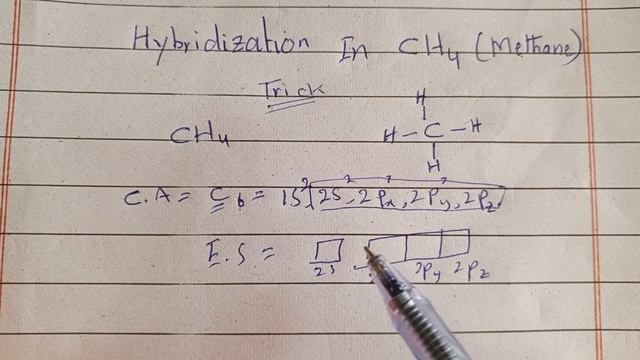 Hybridization In CH4 (Methane)
Trick
H
CH4 H-C-H
H
C.A = C6 = 1S² 2S², 2Px¹, 2Py¹, 2Pz
E.S =
2S 2Py 2Pz